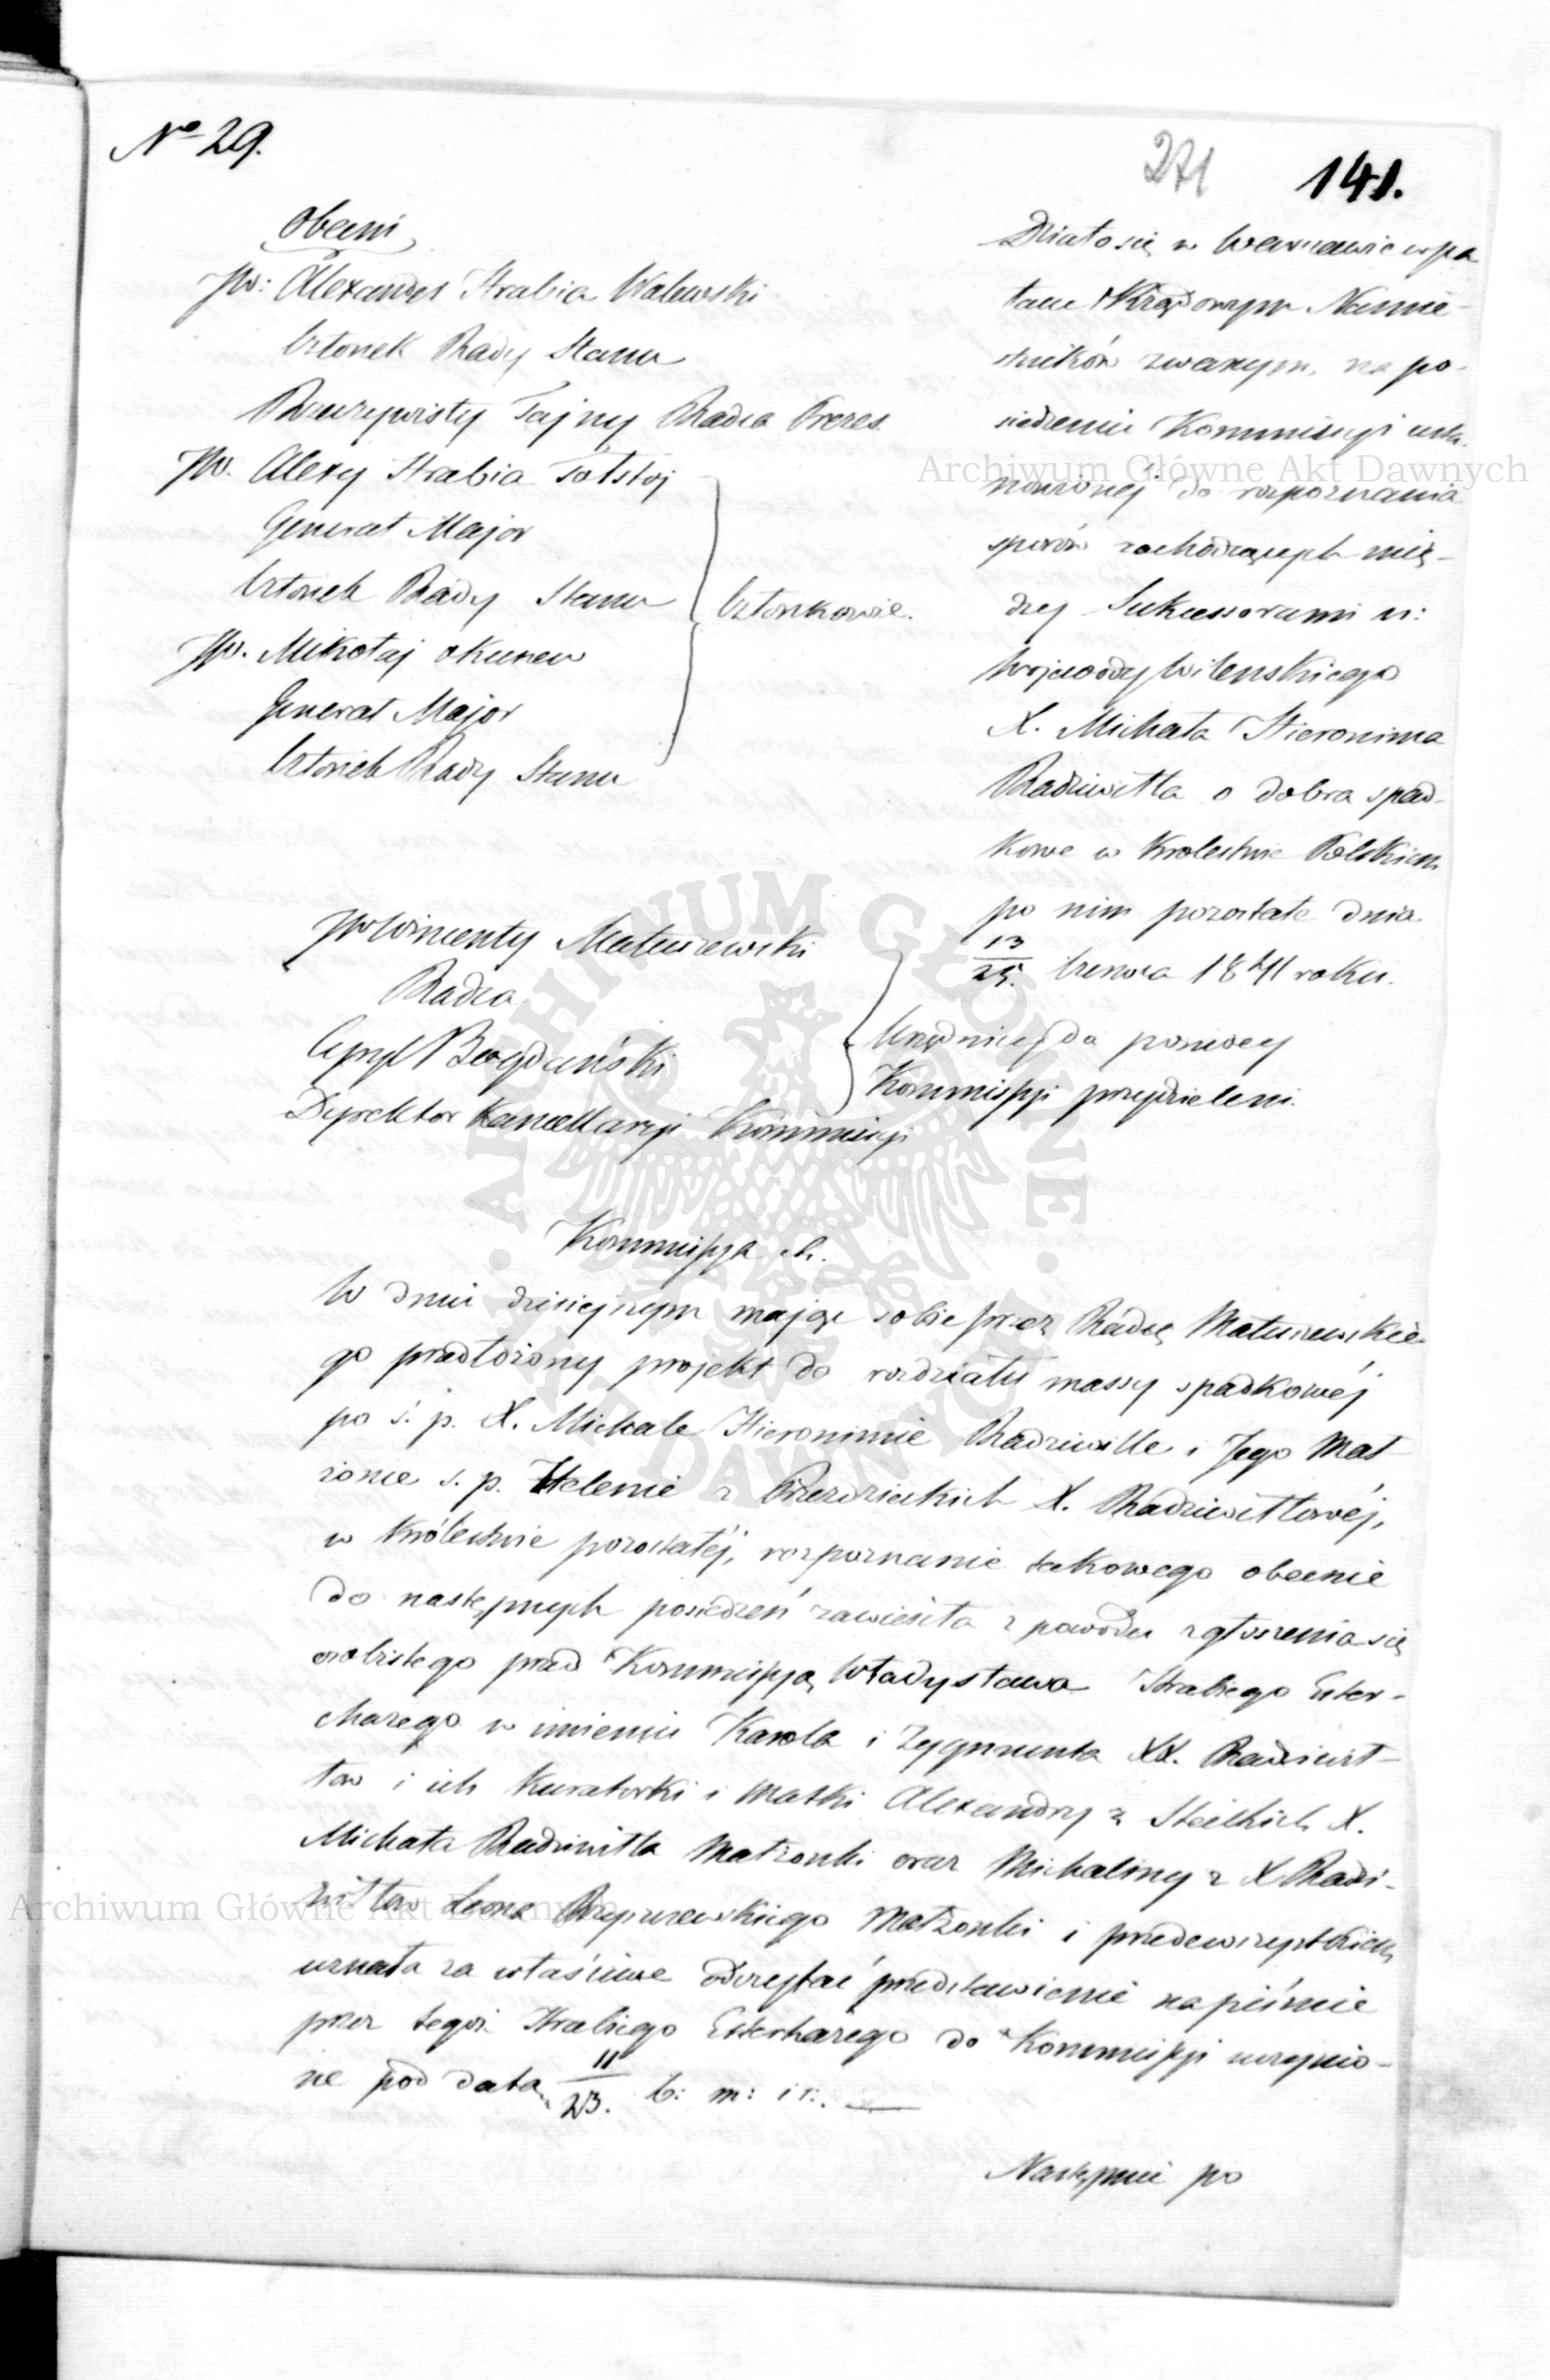 No 29.
271 141.
Obecni
JW: Alexander Hrabia Walewski
Członek Rady Stanu
Rzeczywisty Tajny Radca Prezes
JW. Alexy Hrabia Tołstoj
Generał Major
Członek Rady Stanu
JW. Mikołaj Okunew
Generał Major
Członek Rady Stanu
Członkowie.
JW Wincenty Matuszewski
Radca
Cyryl Bogdański
Dyrektor Kancellaryi Kommissyi
Urzędnicy do pomocy
Kommissyi przydzieleni.
Działo się w Warszawie w pa
łacu Rządowym Namie-
stników zwanym, na po-
siedzeniu Kommissyi usta-
nowionej do rozpoznania
sporów zachodzących mię-
dzy Sukcessorami n:
Wojewody Wileńskiego
X. Michała Hieronima
Radziwiłła o dobra spad-
kowe w Królestwie Polskiem
po nim pozostałe dnia
13/25. Czerwca 1841 roku.
Kommissya
W dniu dzisiejszym mając sobie przez Radcę Matuszewskie-
go przedłożony projekt do rozdziału massy spadkowéj
po ś. p. X. Michale Hieronimie Radziwille i Jego Mał
żonce ś. p. Helenie z Przezdzieckich X. Radziwiłłowéj,
w Królestwie pozostałéj, rozpoznanie takowego obecnie
do następnych posiedzeń zawiesiła z powodu zgłoszenia się
osobistego przed Kommissyą Władysława Hrabiego Ester-
hazego w imieniu Karola i Zygmunta XX. Radziwił-
łów i ich Kuratorki i Matki Alexandry z Steckich X.
Michała Radziwiłła Małżonki oraz Michaliny z X Radzi-
wiłłów Leona Rzyszczewskiego Małżonki i przedewszystkiem
uznała za właściwe odczytać przedstawienie na piśmie
przez tegoż Hrabiego Esterhazego do Kommissyi uczynio-
ne pod datą 11/23. b: m: i r:.
Następnie po
Archiwum Główne Akt Dawnych
Archiwum Główne Akt Dawnych
ARCHIWUM GŁÓWNE AKT DAWNYCH